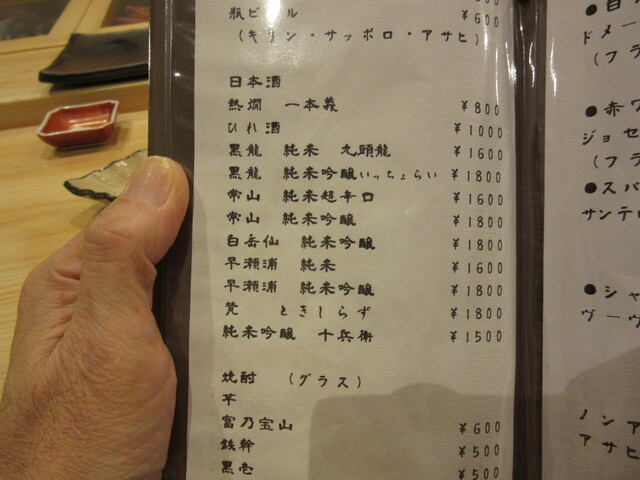 瓶ビール ¥600
(キリン・サッポロ・アサヒ)
日本酒
熱燗 一本義 ¥800
ひれ酒 ¥1000
黒龍 純米 九頭龍 ¥1600
黒龍 純米吟醸いっちょらい ¥1800
常山 純米超辛口 ¥1600
常山 純米吟醸 ¥1800
白岳仙 純米吟醸 ¥1800
早瀬浦 純米 ¥1600
早瀬浦 純米吟醸 ¥1800
梵 ときしらず ¥1800
純米吟醸 十兵衛 ¥1500
焼酎 (グラス)
芋
富乃宝山 ¥600
鉄幹 ¥500
黒壱 ¥500
●白
ドメー
(フラ
●赤ワ
ジョセ
(フラ
●スパ
サンテ
●シャ
ヴーヴ
ノンア
アサヒ